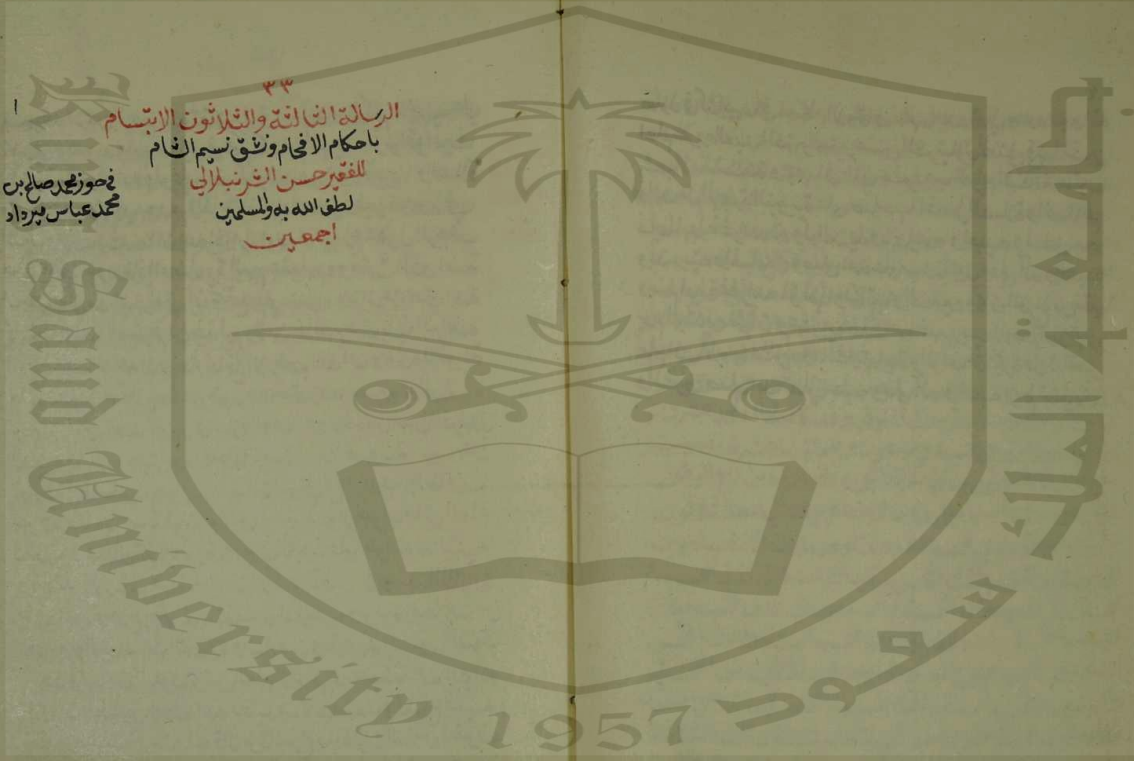 ٣٣
الرسالة الثالثة والثلاثون الابتسام
باحكام الافحام ونشق نسيم الشام
للفقير حسن الشرنبلالي
لطف الله به والمسلمين
اجمعين
١
في حوز محمد صالح بن
محمد عباس ميرداد
جامعة الملك سعود
King Saud University 1957